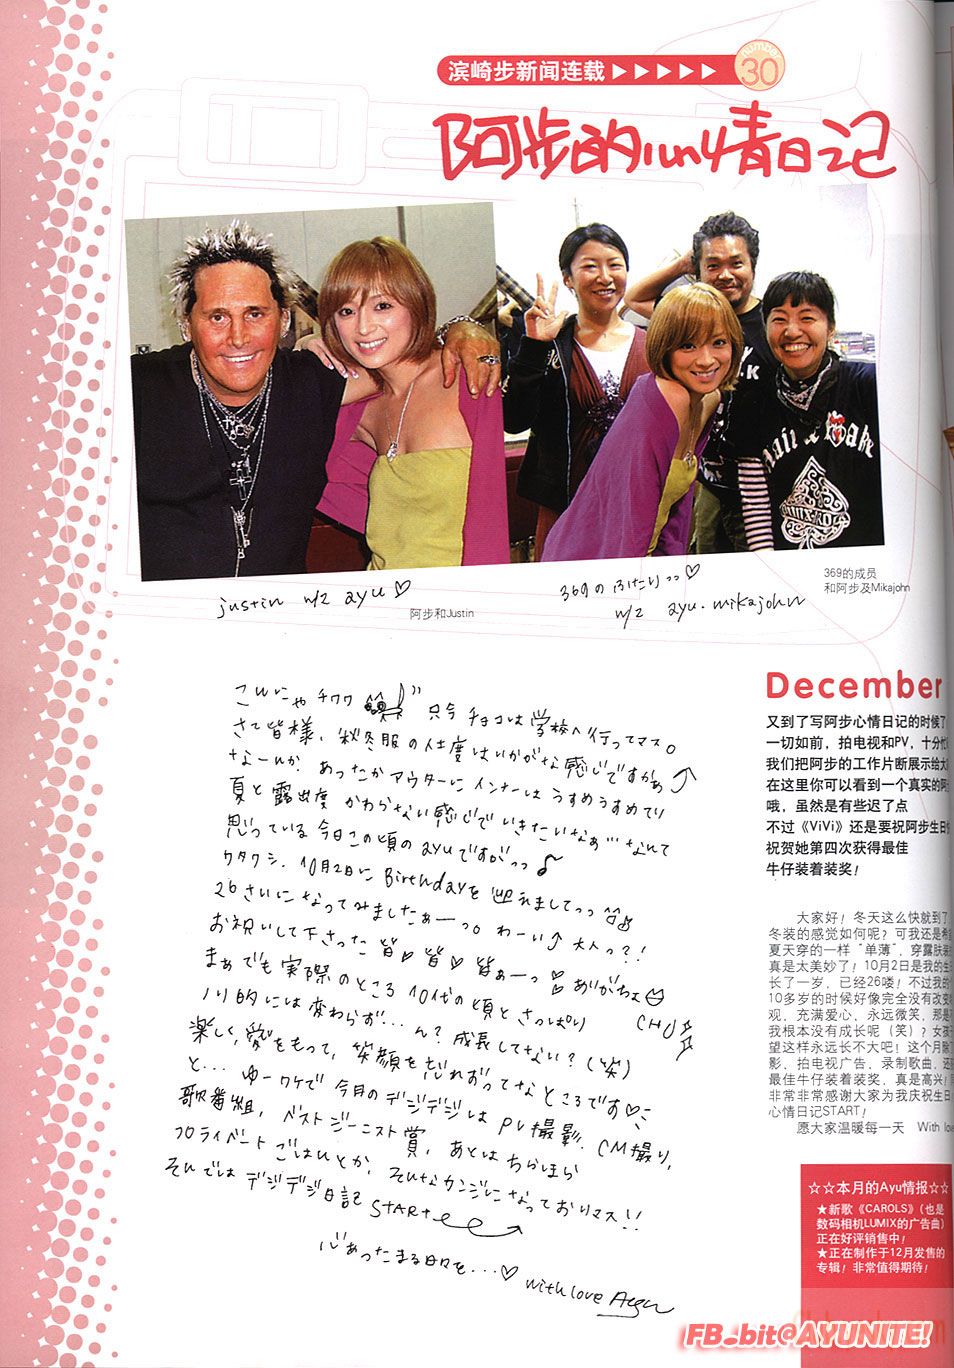 滨崎步新闻连载 ▶▶▶▶▶ number 30
阿步的心情日记
justin n/z ayu ♡
阿步和Justin
369のふたりっっ♡
n/z ayu・mikajohn
369的成员
和阿步及Mikajohn
こんにゃチワワ 只今チョコは学校へ行ってマス。
さて皆様、秋冬服の仕度はいかがな感じですかぁ
なーんか、あったかアウターにインナーはうすめうすめで
夏と露出度かわらない感じでいきたいなぁなんて
思っている今日この頃のayuですがっっ♪
ワタクシ、10月2日にBirthdayを迎えましてっっ
26さいになってみましたぁーっ。わーい↑大人っ?!
お祝いして下さった皆♡皆♡皆ぁーっ♡ありがちょ
まぁでも実際のところ10代の頃とさっぱり CHU
ノリ的には変わらず…ん?成長してない?(笑)
楽しく、愛をもって、笑顔を忘れずってなところです♡
と…ゆーワケで今月のデジデジはPV撮影、CM撮り、
歌番組、ベストジーニスト賞、あとはちらほら
プライベートごはんとか、そんなカンジになっておりマス!!
そんではデジデジ日記 START
心あったまる日々を…♡ with love Ayu
December
又到了写阿步心情日记的时候了
一切如前，拍电视和PV，十分忙
我们把阿步的工作片断展示给大
在这里你可以看到一个真实的阿
哦，虽然是有些迟了点
不过《ViVi》还是要祝阿步生日
祝贺她第四次获得最佳
牛仔装着装奖！
大家好！冬天这么快就到了
冬装的感觉如何呢？可我还是希
夏天穿的一样“单薄”，穿露肤
真是太美妙了！10月2日是我的生
长了一岁，已经26喽！不过我的
10多岁的时候好像完全没有改变
观，充满爱心，永远微笑，那是
我根本没有成长呢（笑）？女孩
望这样永远长不大吧！这个月除
影，拍电视广告，录制歌曲，还
最佳牛仔装着装奖，真是高兴！
非常非常感谢大家为我庆祝生日
心情日记START！
愿大家温暖每一天 With lov
☆☆本月的Ayu情报☆☆
★新歌《CAROLS》（也是
数码相机LUMIX的广告曲）
正在好评销售中！
★正在制作于12月发售的
专辑！非常值得期待！
FB_bit@AYUNITE!